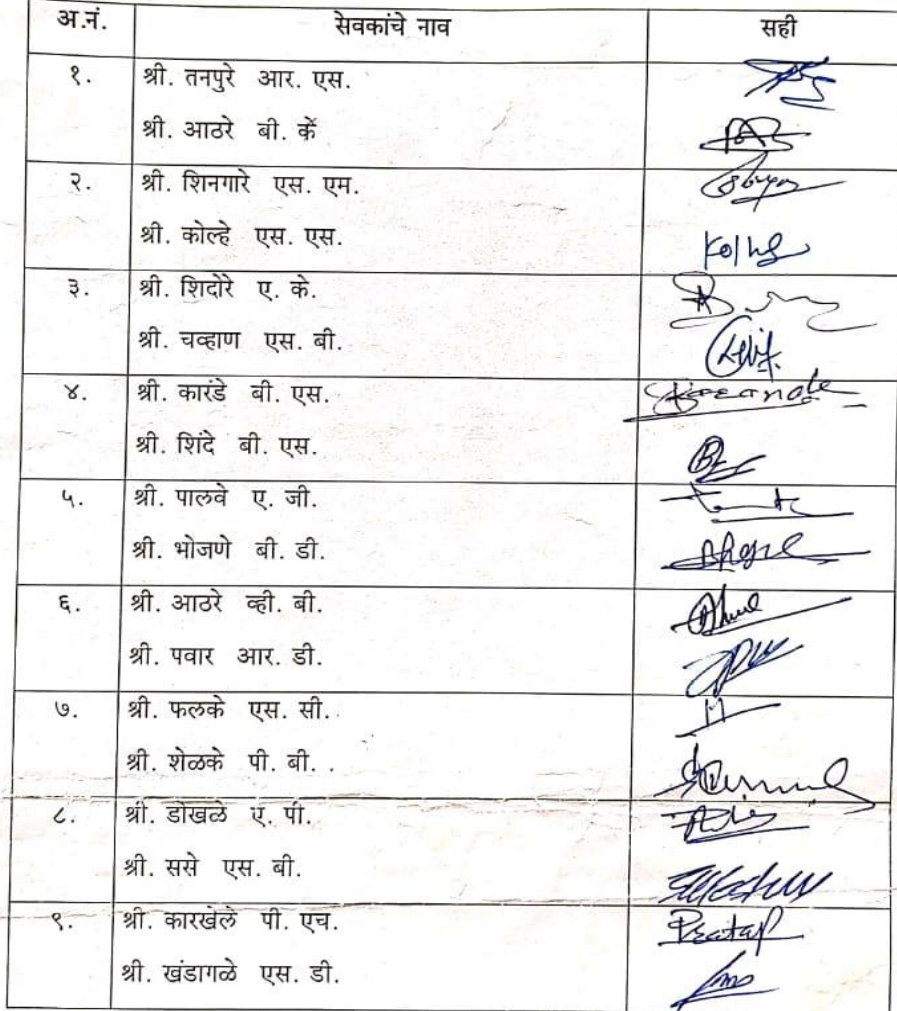 अ.नं. सेवकांचे नाव सही
१. श्री. तनपुरे आर. एस.
श्री. आठरे बी. कें
२. श्री. शिनगारे एस. एम.
श्री. कोल्हे एस. एस. Kolhe
३. श्री. शिदोरे ए. के.
श्री. चव्हाण एस. बी.
४. श्री. कारंडे बी. एस. Karande
श्री. शिंदे बी. एस.
५. श्री. पालवे ए. जी.
श्री. भोजणे बी. डी.
६. श्री. आठरे व्ही. बी.
श्री. पवार आर. डी.
७. श्री. फलके एस. सी.
श्री. शेळके पी. बी.
८. श्री. डोखळे ए. पी.
श्री. ससे एस. बी.
९. श्री. कारखेले पी. एच. Pratap
श्री. खंडागळे एस. डी.